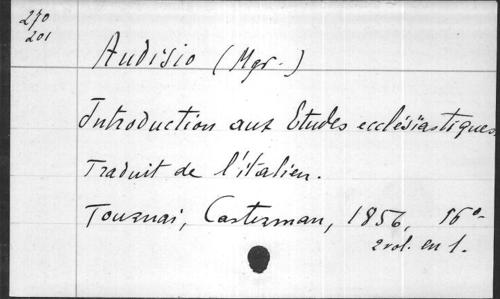 270
201
Audisio (Mgr.)
Introduction aux Etudes ecclésiastiques.
Traduit de l'italien.
Tournai, Casterman, 1856, 16°
2 vol. en 1.